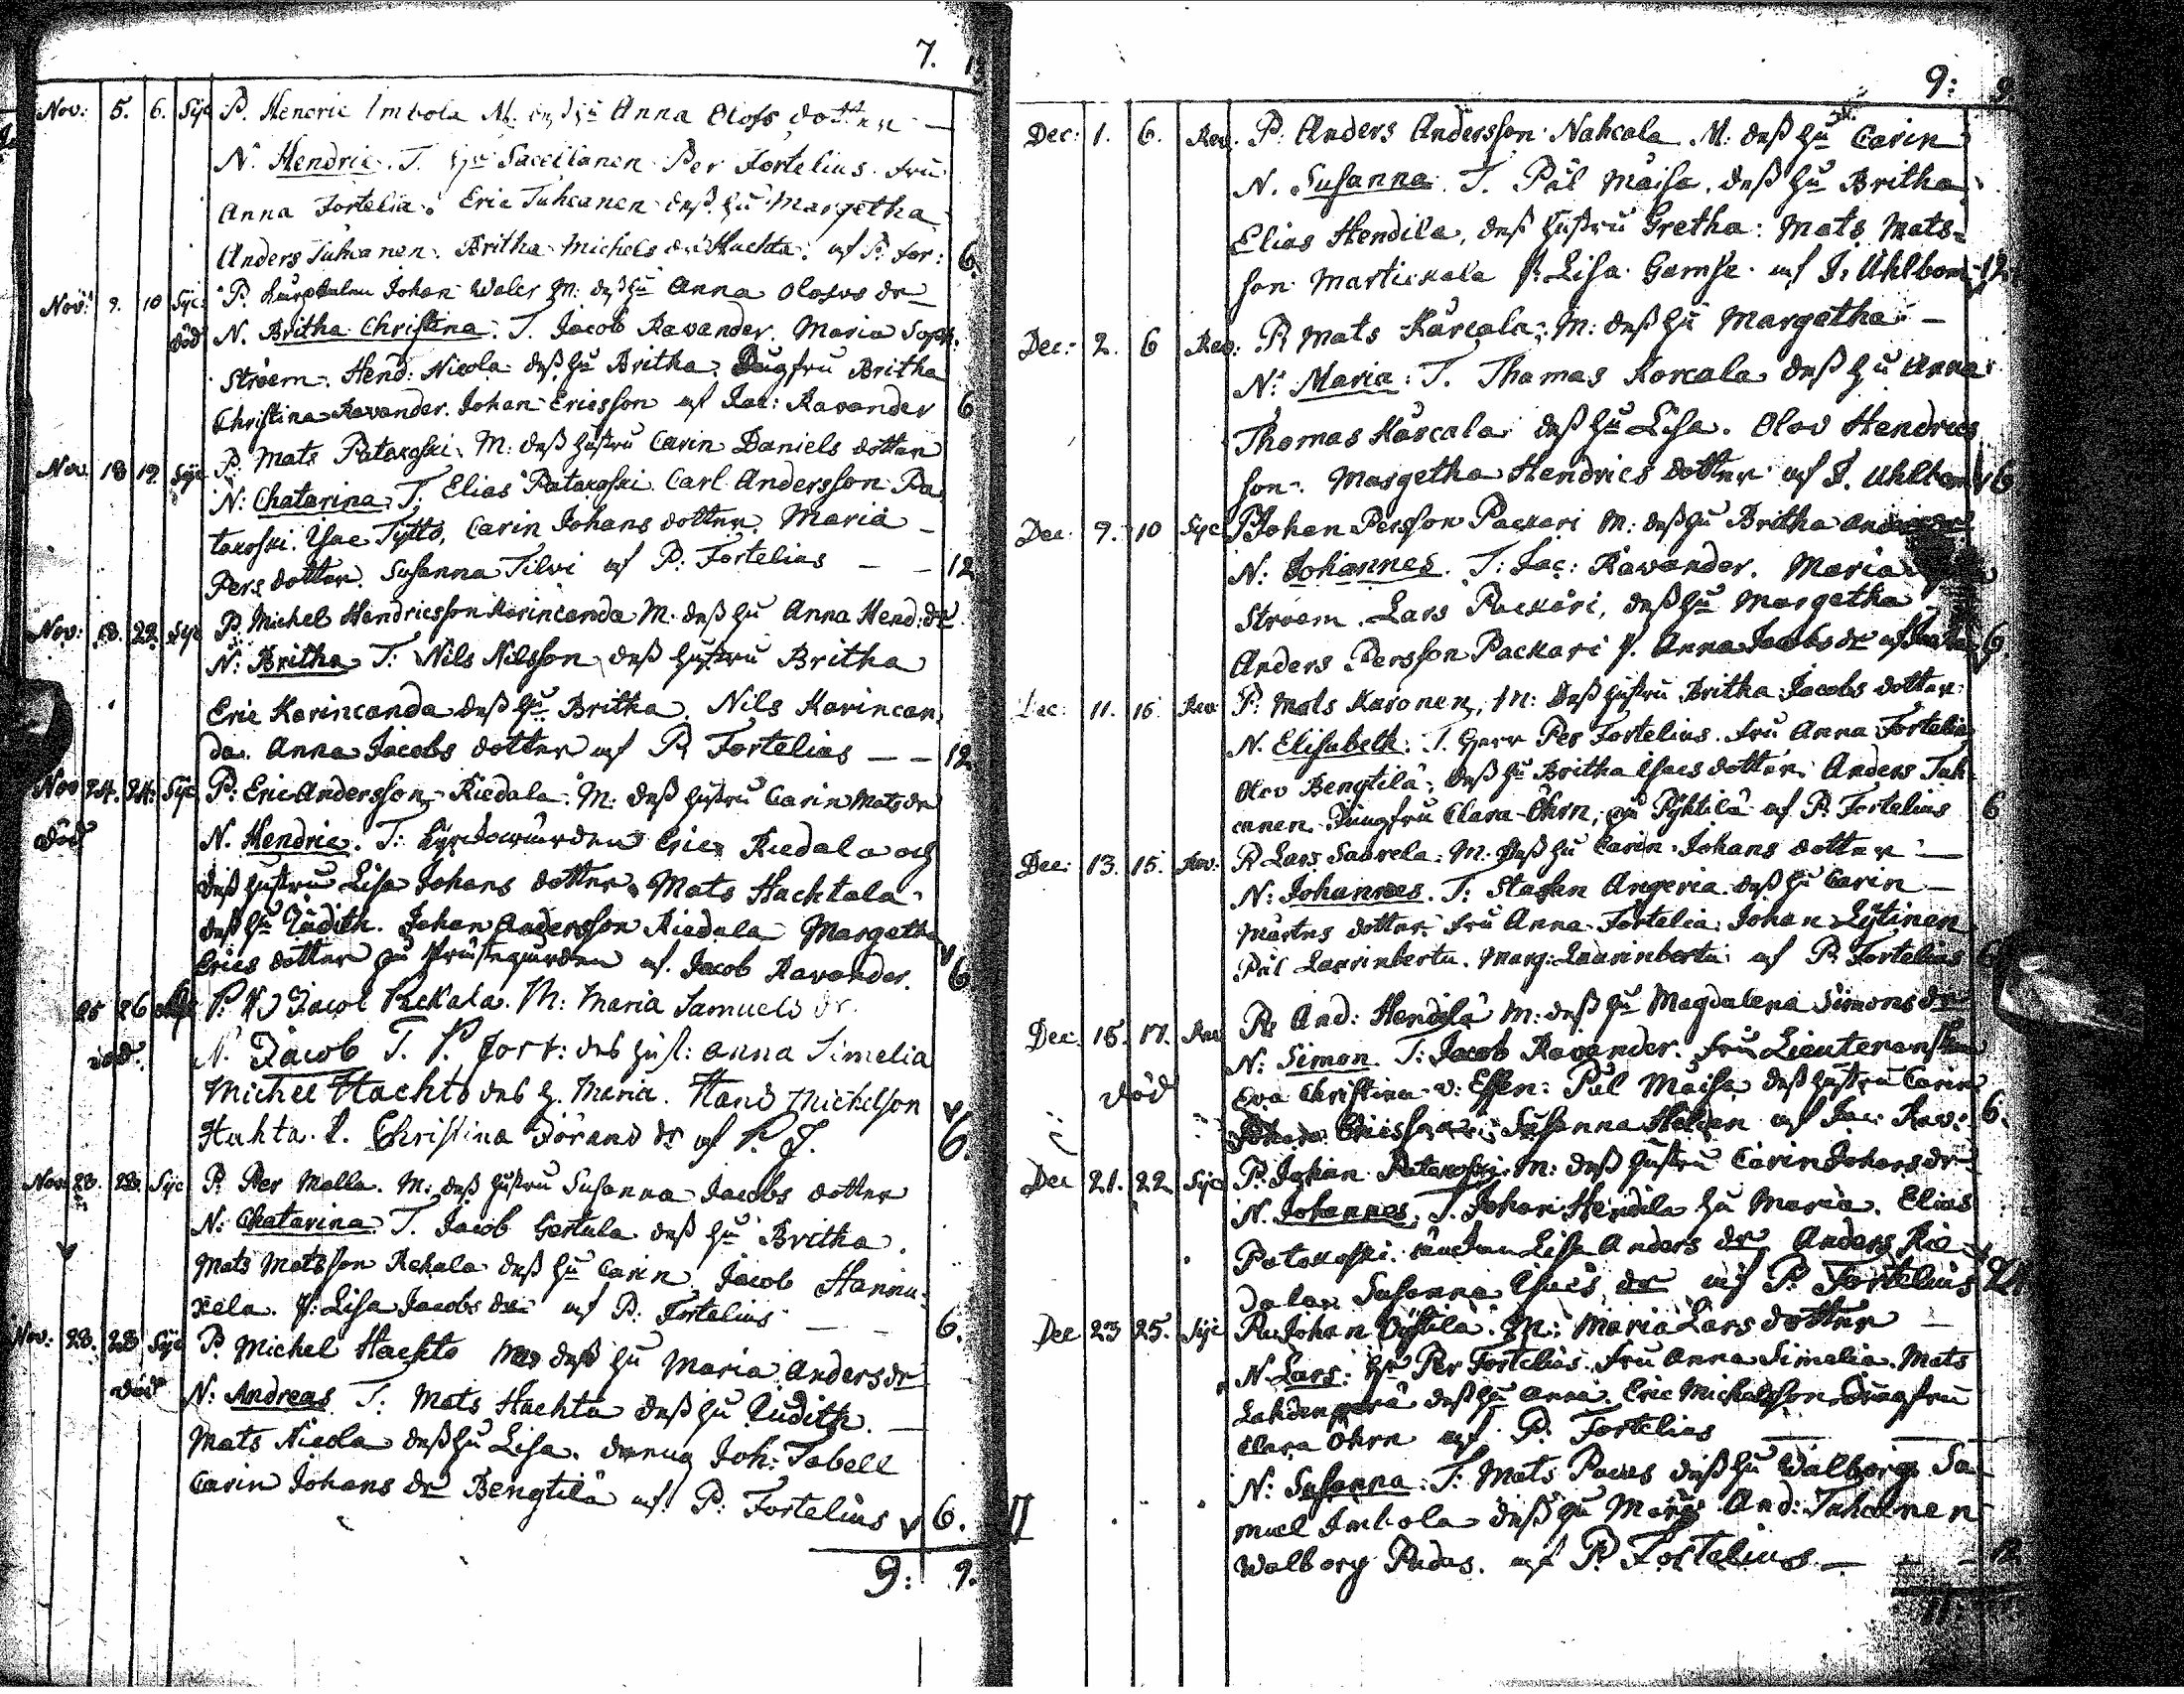 7.
Nov: 5. 6. Syc P. Hendric Imbola M. deß hu Anna Olofs dotter —
N. Hendric. T. Hr Sacellanen Per Fortelius. fru
Anna Fortelia. Eric Tuhcanen deß hu Margetha
Anders Tuhcanen. Britha Michels dr Huchta. af P. For: 6.
Nov: 9. 10 Syc: P. Johan Waler M: deß hu Anna Olofs dr
död N. Britha Christina. T. Jacob Ravander. Maria Soph.
Ström. Hend: Nicola deß hu Britha. Jungfru Britha
Christina Ravander. Johan Ericsson af Jac: Ravander 6
Nov. 18 19. Syc P. Mats Patakoski. M: deß hustru Carin Daniels dotter
N: Chatarina. T. Elias Patakoski. Carl Andersson Pa-
takoski. Isac Tyttö, Carin Johans dotter. Maria —
Pers dotter. Susanna Tilvi af P. Fortelius — — 12
Nov: 18. 22. Syc P. Michel Hendricsson Korincanda M. deß hu Anna Hend: dr
N: Britha T: Nils Nilsson deß hustru Britha
Eric Korincanda deß hu Britha. Nils Korincan-
da. Anna Jacobs dotter af P. Fortelius — — 12
Nov 24. 24. Syc P: Eric Andersson Riedala. M: deß hustru Carin Mats dr
död N. Hendric. T: Eric Riedala och
deß hustru Lisa Johans dotter. Mats Huchtala
deß hu Judith. Johan Andersson Riedala Margetha
Erics dotter af. Jacob Ravander. 6
25 26 P. Jacob Rekala. M: Maria Samuels dr.
död. N. Jacob T. P. Fort: des hust: Anna Simelia
Michel Huchto des h. Maria. Hans Michelson
Huhta. P. Christina Jörans dr af P. F. 6.
Nov 28. 28. Syc P. Per Malla. M: deß hustru Susanna Jacobs dotter
N: Chatarina T. Jacob Gertula deß hu Britha.
Mats Matsson Rekala deß hu Carin Jacob Hannu-
xela. P: Lisa Jacobs dr af P. Fortelius — — 6.
Nov: 28. 28 Syc P. Michel Huchto M deß hu Maria Anders dr
död N: Andreas T: Mats Huchta deß hu Judith. —
Mats Nicola deß hu Lisa. dreng Joh: Tabell
Carin Johans dr Bengtilä af P: Fortelius v 6.
9: 9.
9: 9
Dec: 1. 6. Rev. P. Anders Andersson Nahcala M: deß hu Carin
N. Susanna. T. Pål Maisa. deß hu Britha
Elias Hendila, deß hustru Gretha: Mats Mats-
son Martickala P. Lisa Gamse af J. Uhlbom 12.
Dec: 2. 6 Rev: P. Mats Karcala: M: deß hu Margetha —
N: Maria: T. Thomas Korcala deß hu Anna
Thomas Karcala deß hu Lisa. Olov Hendrics
son. Margetha Hendrics dotter af J. Uhlbom 6
Dec: 9. 10 Syc P. Johan Persson Packari M: deß hu Britha
N: Johannes. T: Jac: Ravander. Maria
Ström. Lars Packari, deß hu Margetha
Anders Persson Packari P. Anna Jacobs dr af 6.
Dec: 11. 16. Rev P: Mats Karonen, M: deß hustru Britha Jacobs dotter
N. Elisabeth: T. Herr Per Fortelius. fru Anna Fortelia
Olov Bengtilä, deß hu Britha Isacs dotter. Anders Tuh-
canen. Jungfru Clara Öhrn, på Pyhtilä af P. Fortelius 6
Dec: 13. 15. Rev: P. Lars Saarela: M: deß hu Carin Johans dotter —
N: Johannes. T: Stafan Angeria. deß hu Carin —
Mårtens dotter. fru Anna Fortelia. Johan Lytinen
Pål Laurinbertu. Marg: Laurinbertu af P. Fortelius 6
Dec. 15. 17. Rev P. And: Hendila M: deß hu Magdalena Simons dr
N: Simon. T: Jacob Ravander. fru Lieutenanskan
död Eva Christina v: Essen: Pål Maisa deß hustru Carin
Ericsson Susanna Helsen af Jac: Rav: 6.
Dec 21. 22. Syc P. Johan Patakoski. M: deß hustru Carin Johans dr
N. Johannes. T. Johan Hendila hu Maria. Elias
Patakoski. änkan Lisa Anders dr Anders Rie-
dala. Susanna Isacs dr af P. Fortelius
Dec 23 25. Syc P. Johan Öystilä. M: Maria Lars dotter —
N. Lars: Hr Per Fortelius. fru Anna Simelia. Mats
Lahdenperä deß hu Anna. Eric Michelsson Jungfru
Clara Öhrn af P. Fortelius —
N: Susanna: T: Mats Pacus deß hu Walborg Sa-
muel Imbola deß hu Marg: And: Tuhcanen
Walborg Pudas. af P. Fortelius — 12.
11